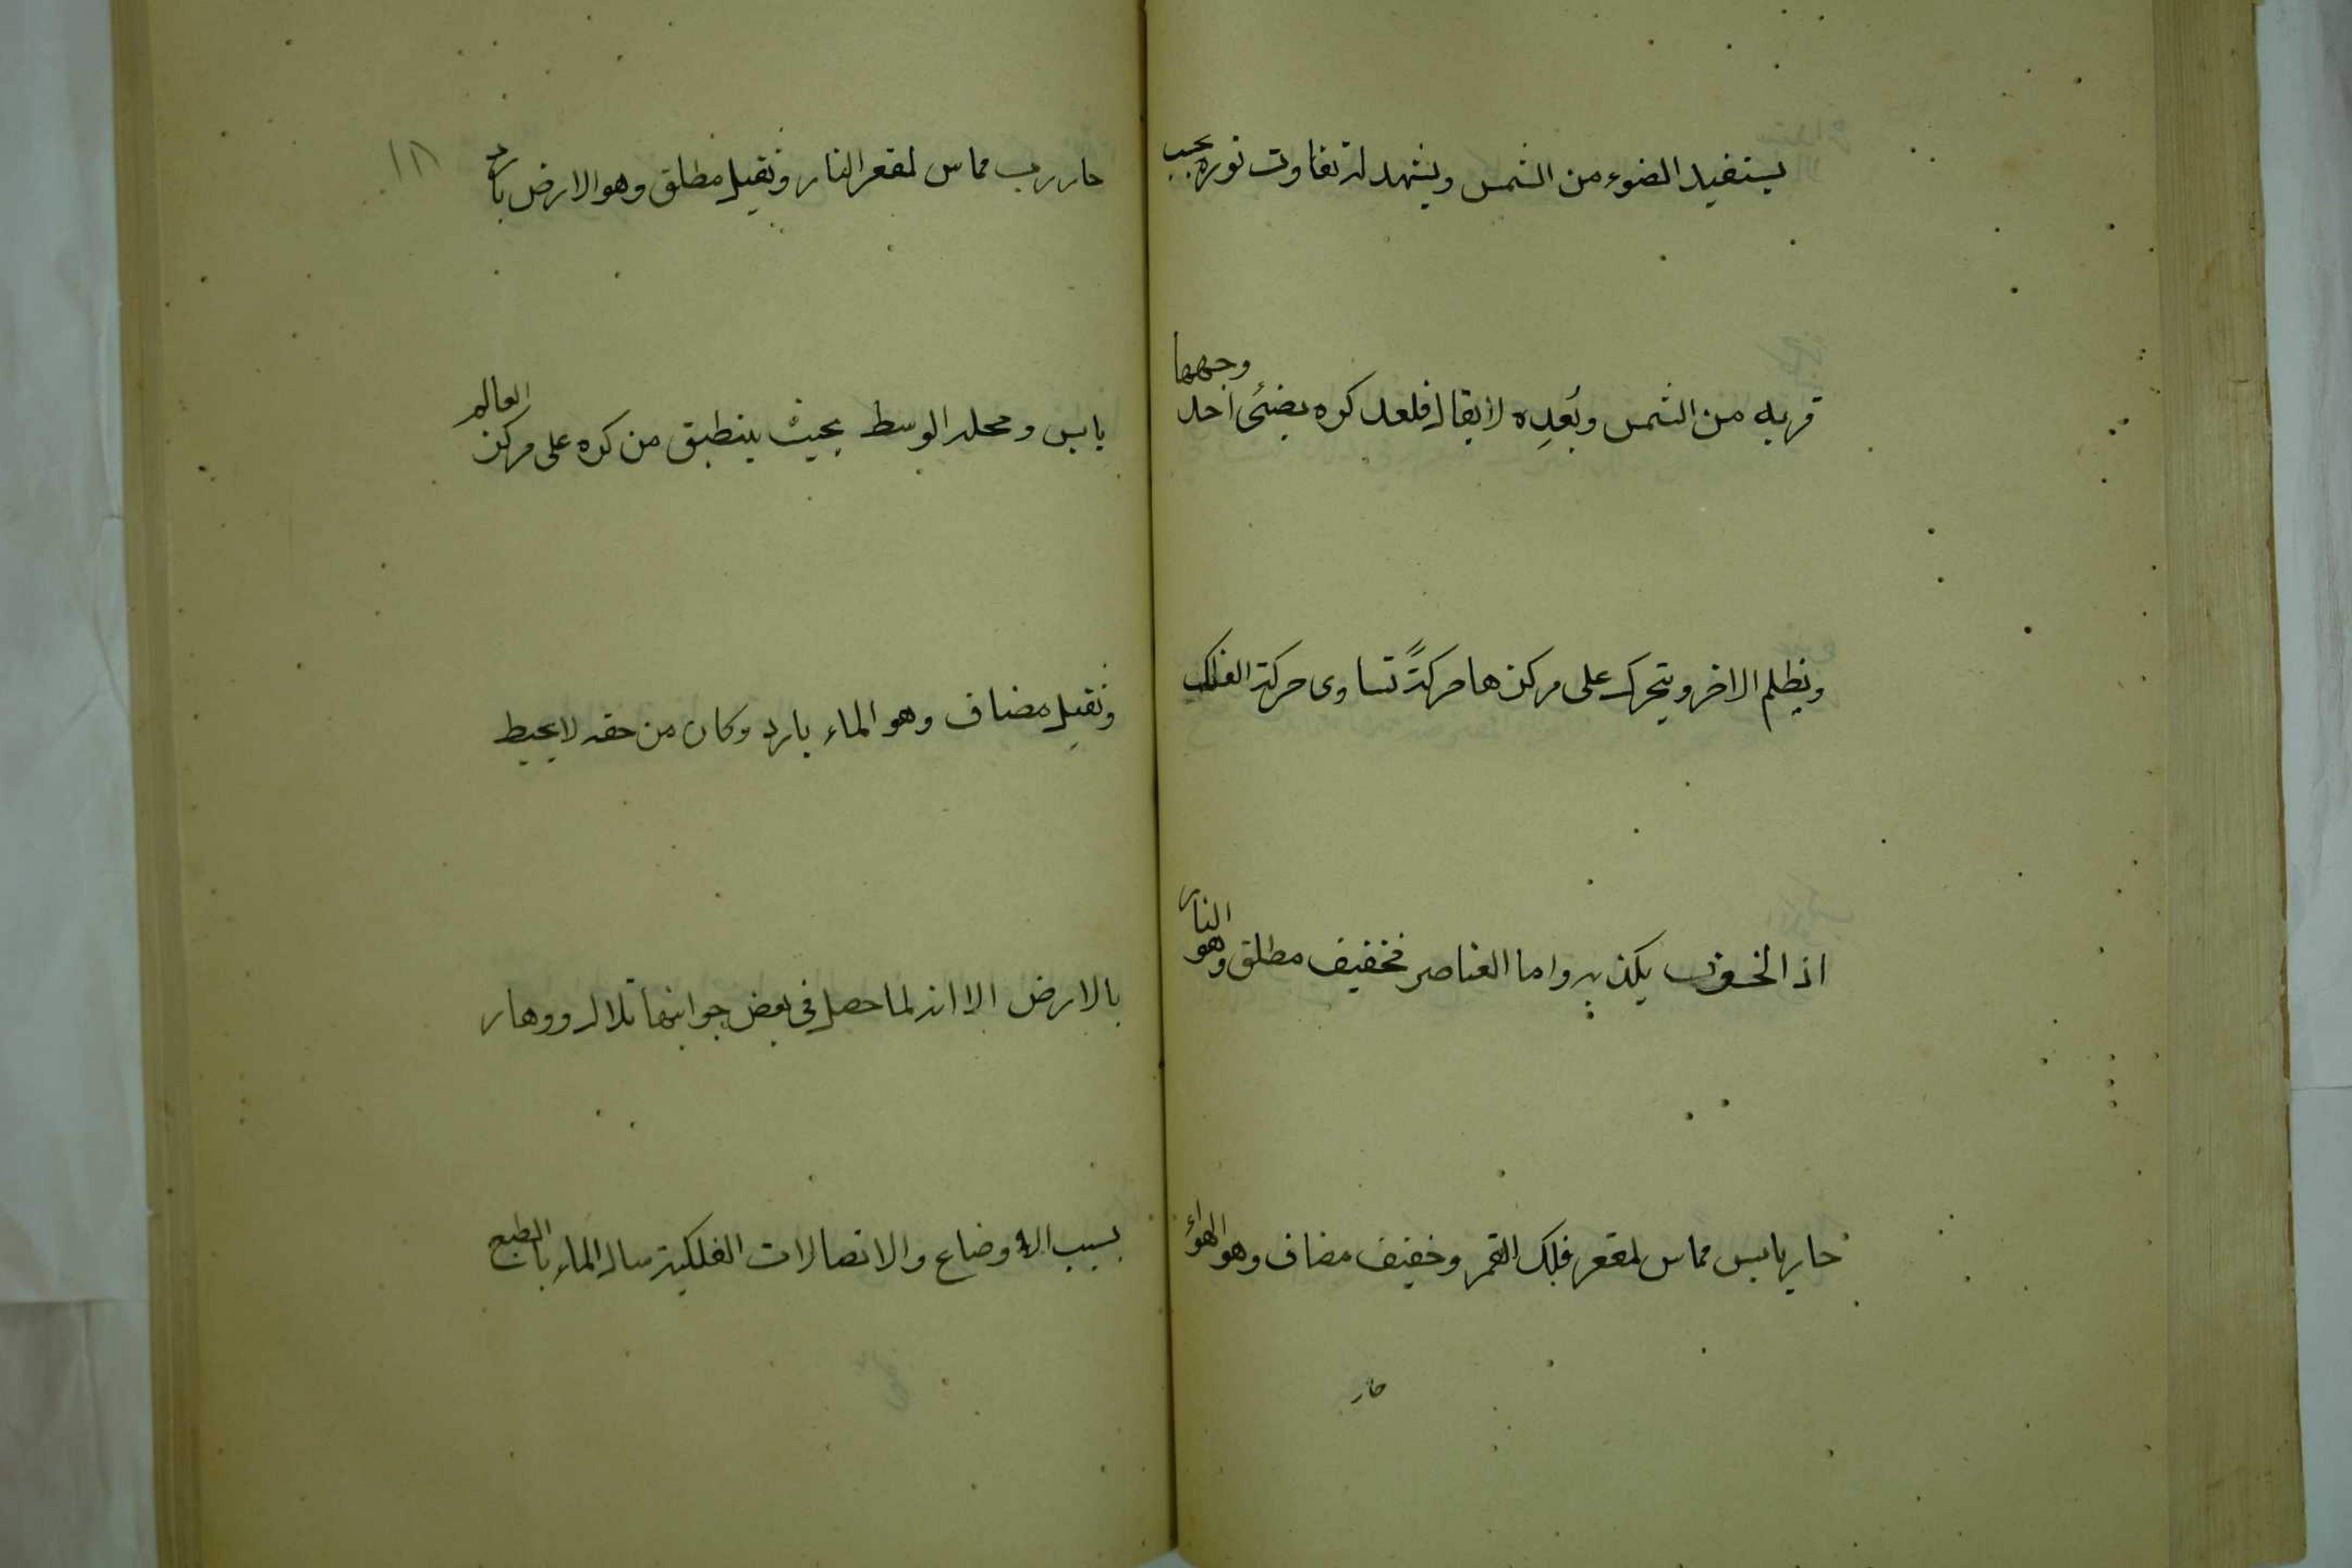 يستفيد الضوء من الشمس ويشهد له تفاوت نوره بحسب
قربه من الشمس وبُعدِه لا يقال فلعل كره يضئ احد وجهها
ويظلم الاخر ويتحرك على مركزها حركةً تساوى حركة الفلك
اذ الخسوف يكذبه واما العناصر فخفيف مطلق وهو النار
حار يابس مماس لمقعر فلك القمر وخفيف مضاف وهو الهواء
حار
١٨
حار رب مماس لمقعر النار وثقيل مطلق وهو الارض بارد
يابس ومحله الوسط بحيث ينطبق من كره على مركز العالم
وثقيل مضاف وهو الماء بارد وكان من حقه لا يحيط
بالارض الا انه لما حصل فى بعض جوانبها تلال ووهار
بسبب الاوضاع والاتصالات الفلكية سال الماء بالطبع